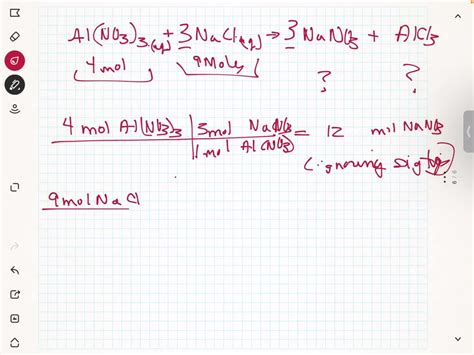 Al(NO3)3(aq) + 3NaCl(aq) → 3NaNO3 + AlCl3
4mol 9Moles ? ?
4 mol Al(NO3)3 | 3mol NaNO3 = 12 mol NaNO3
1mol Al(NO3) (ignoring sigfig)
9molNaCl